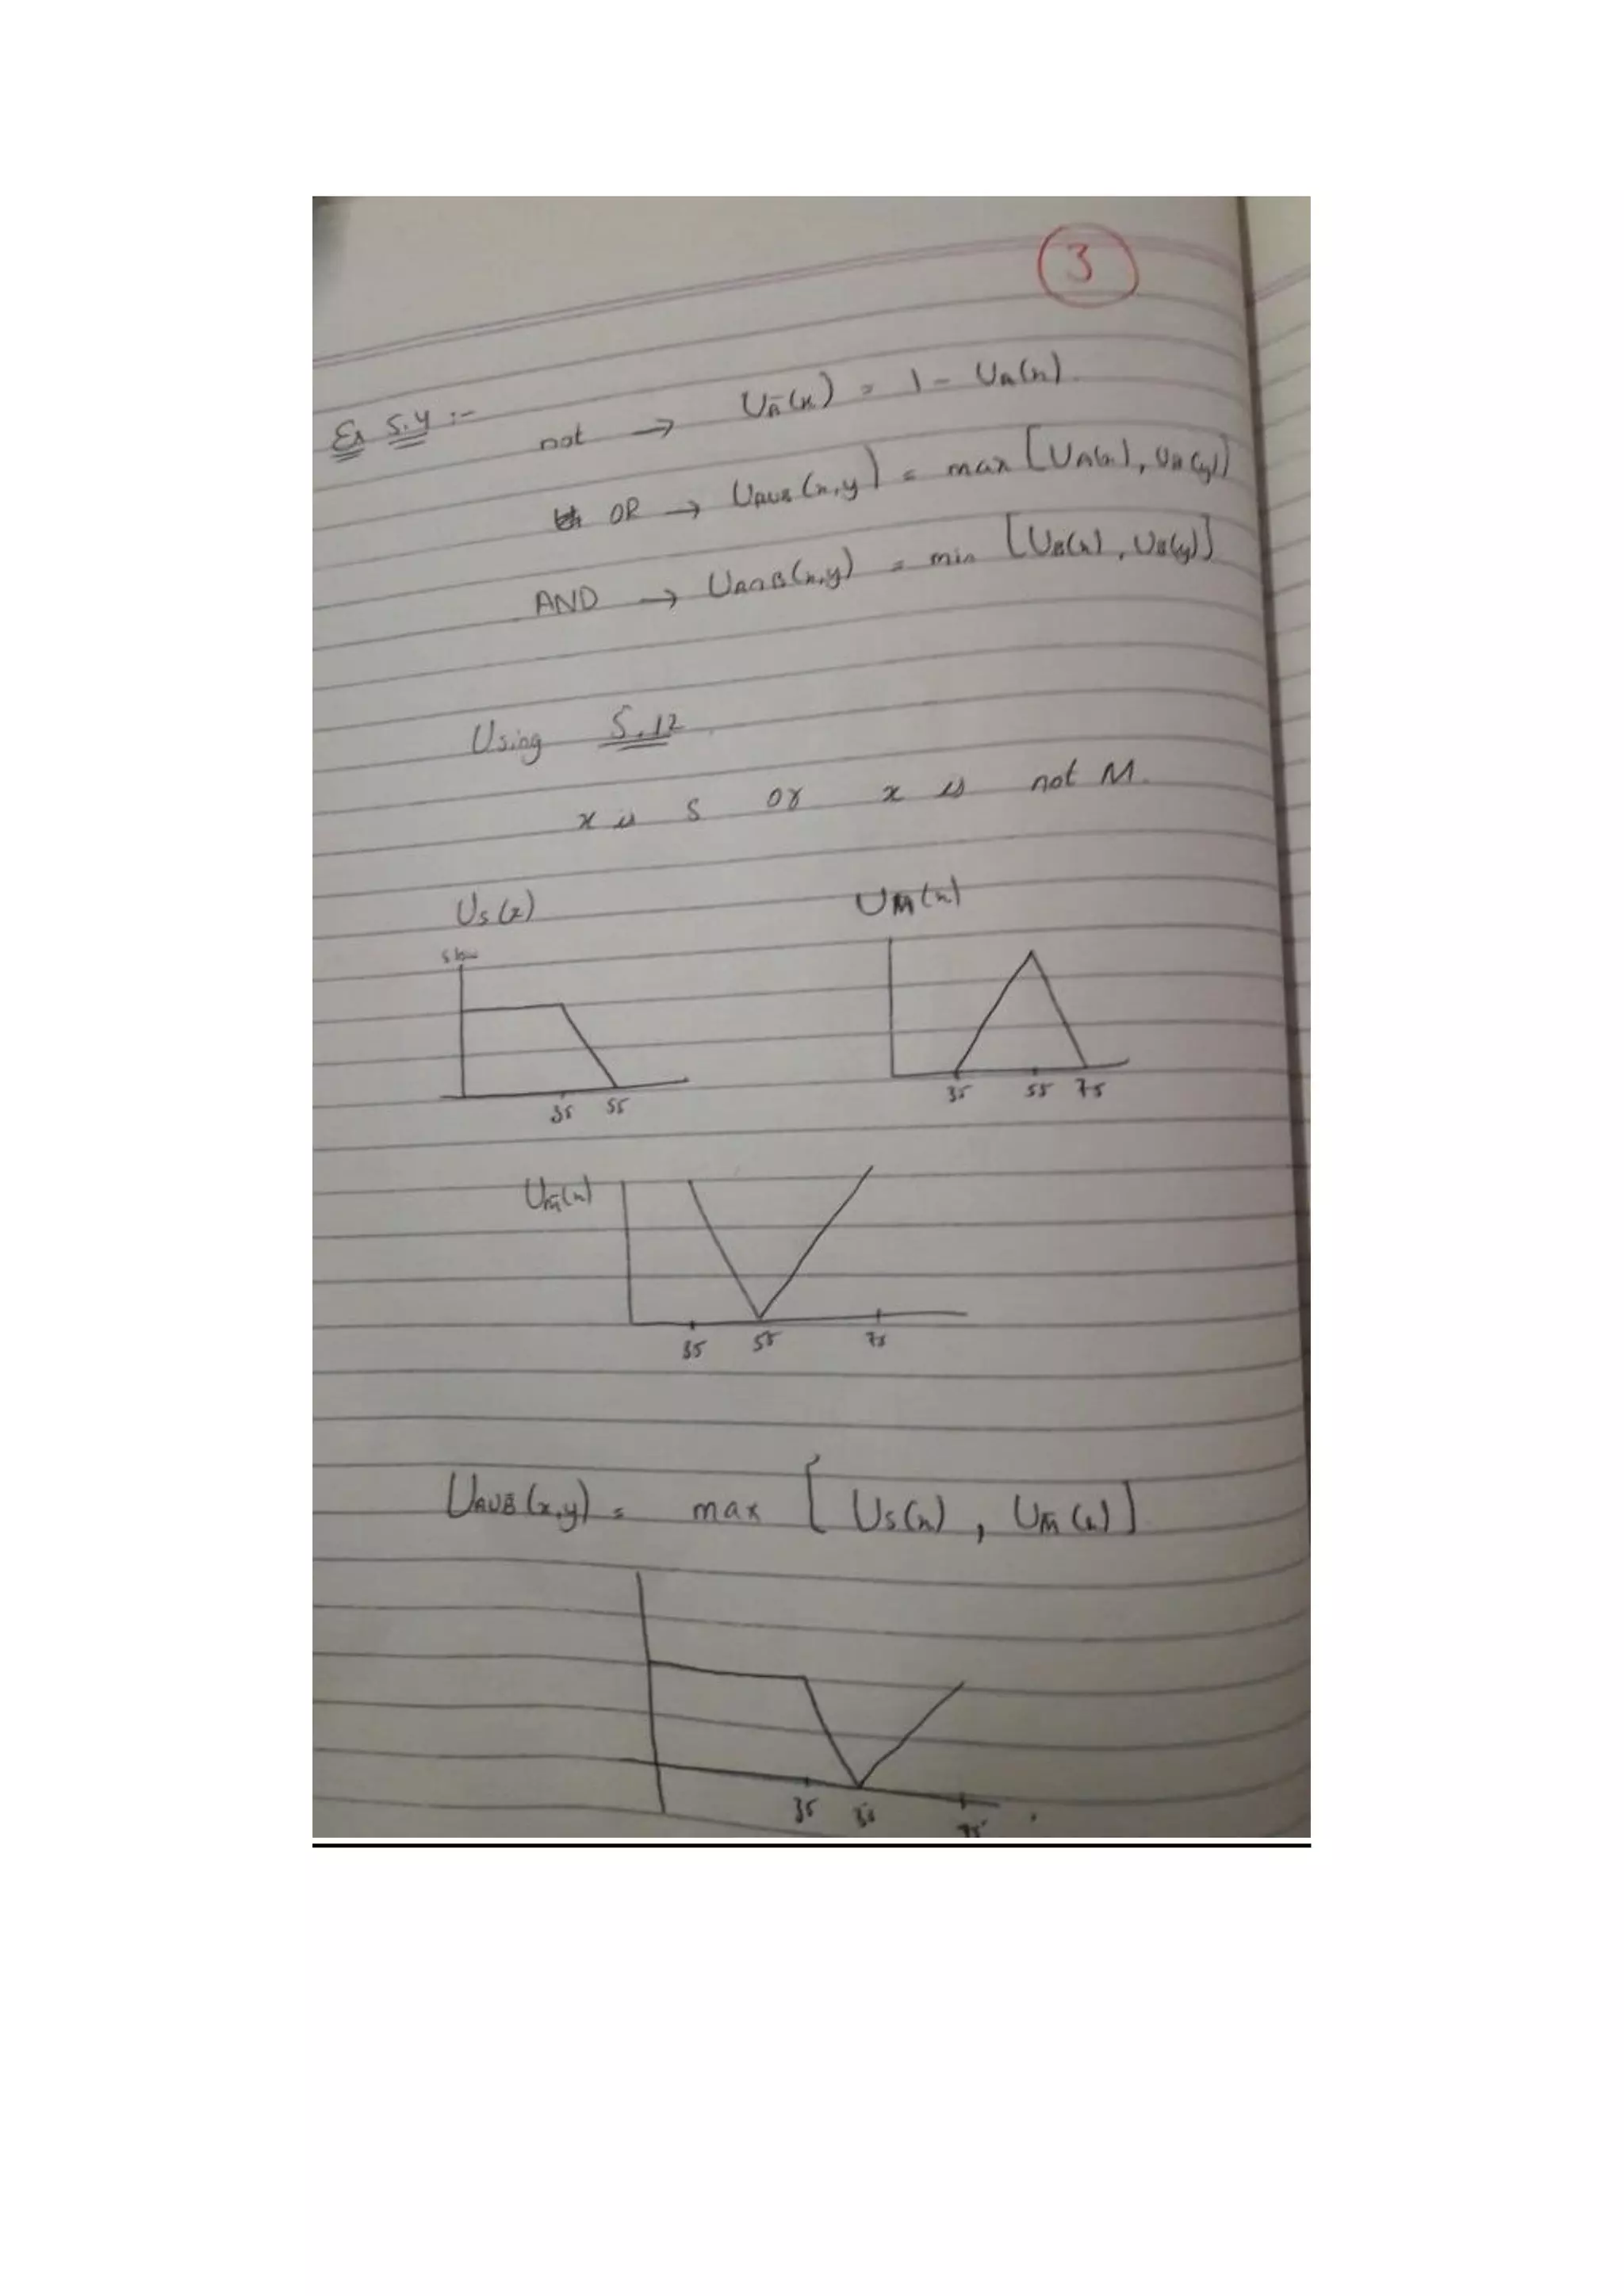 3
Ex 5.4 :-
not → U_Ā(x) = 1 - U_A(x).
OR → U_A∪B(x,y) = max [U_A(x), U_B(y)]
AND → U_A∩B(x,y) = min [U_B(x), U_B(y)]
Using 5.12.
x is S or x is not M.
U_S(x) U_M(x)
slow
35 55 35 55 75
U_M̄(x)
35 55 75
U_A∪B̄(x,y) = max [ U_S(x), U_M̄(x) ]
35 55 75